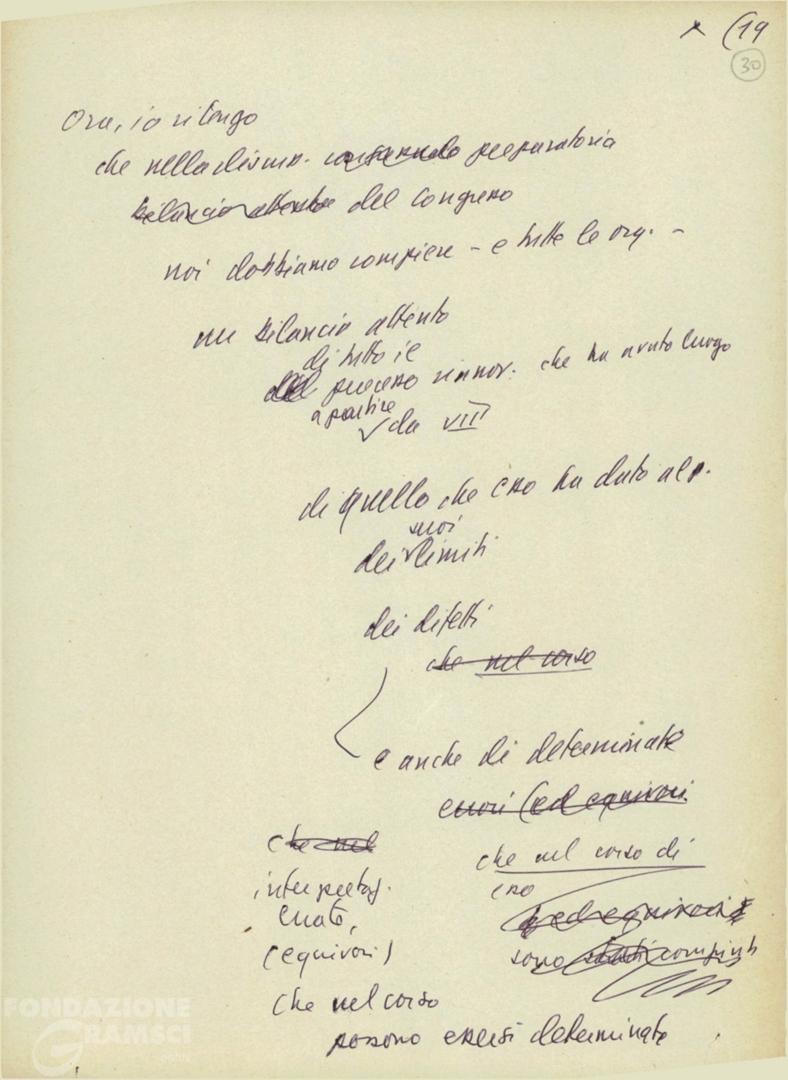 x (19
30
Ora, io ritengo
che nella discuss. preparatoria
bilancio attento del Congresso
noi dobbiamo compiere - e tutte le org. -
un bilancio attento
di tutto il
del processo rinnov. che ha avuto luogo
a partire
da VIII
di quello che esso ha dato al p.
suoi
dei limiti
dei difetti
che nel corso
e anche di determinate
errori (ed equivoci
che nel
che nel corso di
interpretaz.
esso
errate,
ed equivoci
(equivoci)
sono stati compiuti
che nel corso
possono essersi determinate
FONDAZIONE
GRAMSCI